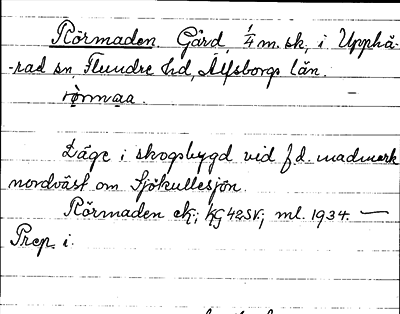 Rörmaden. Gård, 1/4 m. sk, i Upphä-
-rad sn, Flundre hd, Älfsborgs län.
rö̀rmaa. –
Läge i skogsbygd vid f.d. madmark
nordväst om Sjökullesjön.
Rörmaden ek; kg 42 SV; ml. 1934. —
Prep. i.